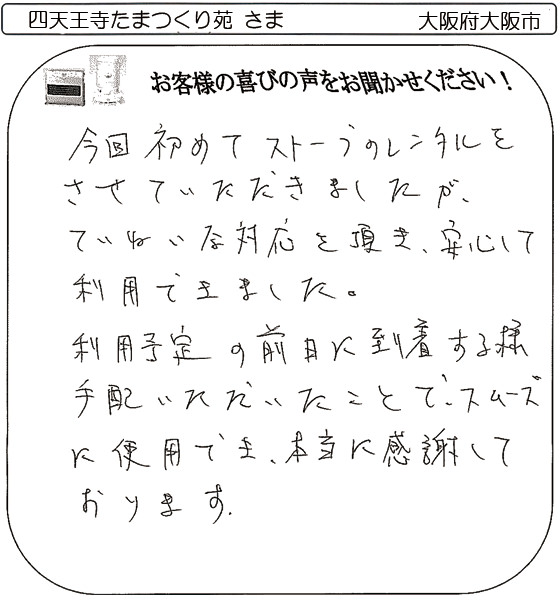 四天王寺たまつくり苑 さま 大阪府大阪市
お客様の喜びの声をお聞かせください！
今回初めてストーブのレンタルを
させていただきましたが、
ていねいな対応を頂き、安心して
利用できました。
利用予定の前日に到着する様
手配いただいたことで、スムーズ
に使用でき、本当に感謝して
おります。